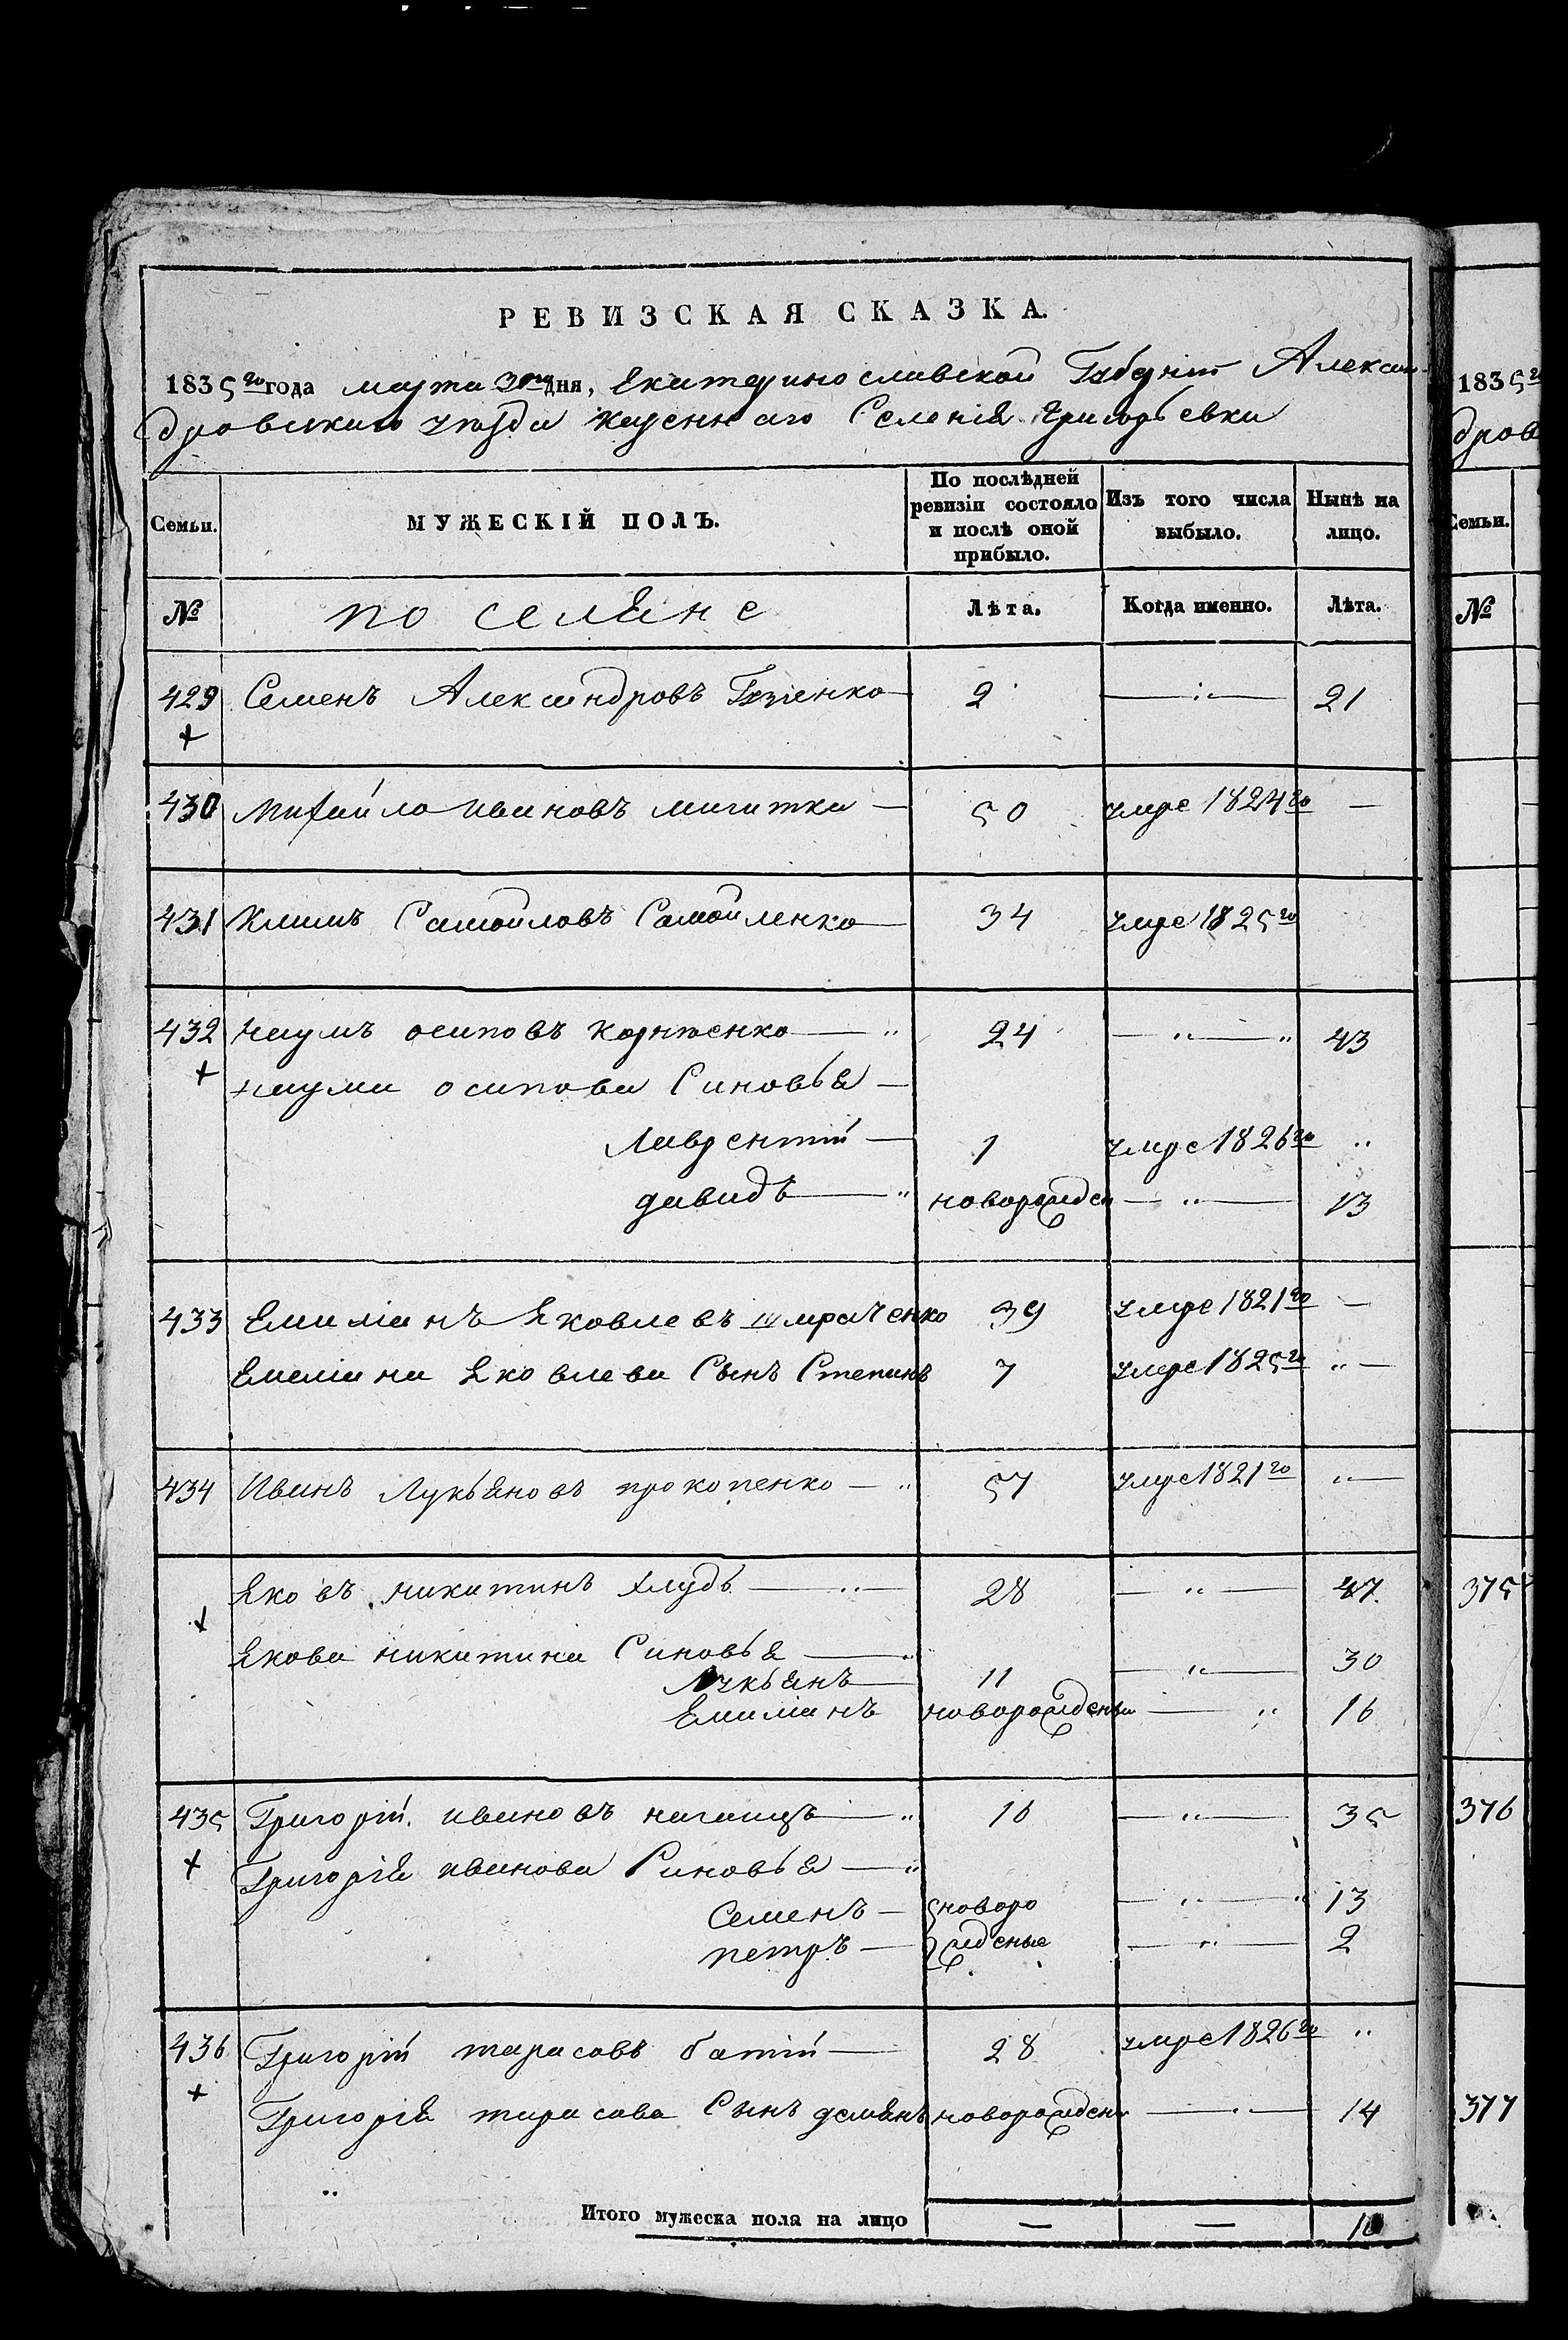 РЕВИЗСКАЯ СКАЗКА.
1835го года марта 30го дня, Екатеринославской Губерніи Алексан-
дровскаго уезда казеннаго Селенія Григорьевки
Семьи. МУЖЕСКІЙ ПОЛЪ. По послѣдней ревизіи состояло и послѣ оной прибыло. Изъ того числа выбыло. Нынѣ на лицо.
№ поселяне Лѣта. Когда именно. Лѣта.
429 Семенъ Александровъ 2 21
430 Михайло Ивановъ 50 умре 1824го —
431 Климъ Самойловъ Самойленко 34 умре 1825го
432 Наумъ осиповъ 24 43
наума осипова Синовья
Лаврентій 1 умре 1826го
давидъ новорожден 13
433 Емиліанъ Яковлевъ 39 умре 1821го —
Емеліана Яковлева Сынъ Степанъ 7 умре 1825го
434 Иванъ Лукьяновъ прокопенко 57 умре 1821го
Яковъ никитинъ хлудъ 28 47
Якова никитина Синовья
Лукьянъ 11 30
Емиліанъ новорожденны 16
435 Григорій ивановъ 16 35
Григорія иванова Синовья
Семенъ новоро 13
петръ жденые 2
436 Григорій тарасовъ батій 28 умре 1826го
Григорія тарасова Сынъ демянъ новорожден 14
Итого мужеска пола на лицо — —
1835го
дров
Семьи.
№
375
376
377